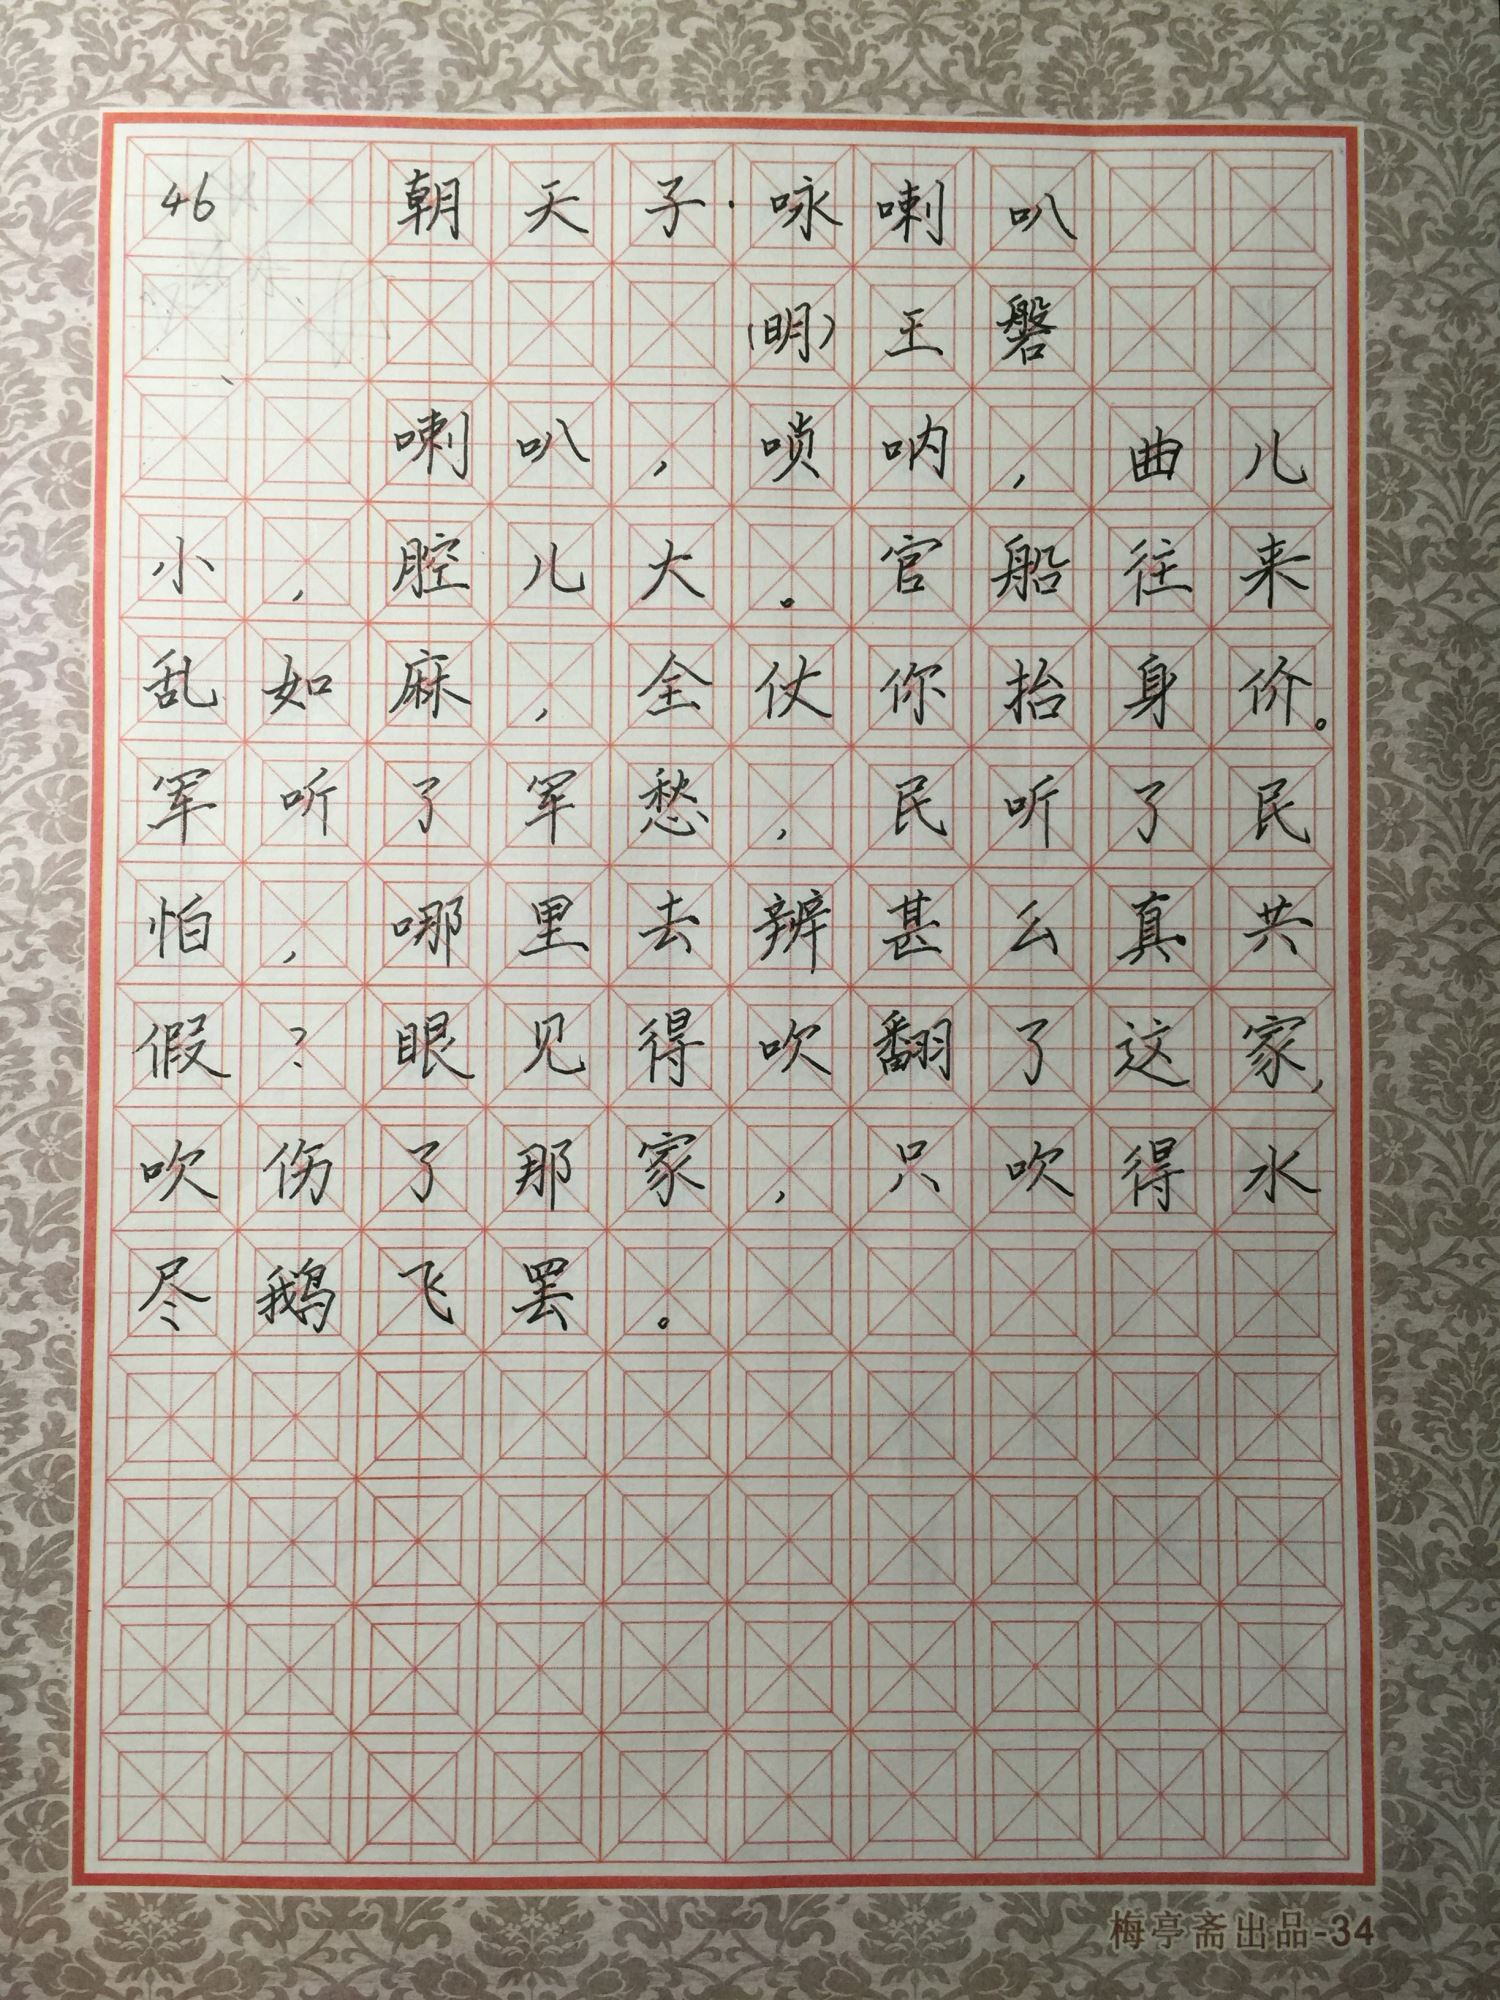 46 朝天子·咏喇叭
(明)王磐
喇叭,唢呐,曲儿
小,腔儿大。官船往来
乱如麻,全仗你抬身价。
军听了军愁,民听了民
怕,哪里去辨甚么真共
假?眼见得吹翻了这家,
吹伤了那家,只吹得水
尽鹅飞罢。
梅亭斋出品-34